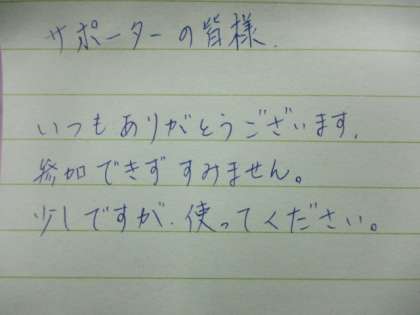 サポーターの皆様.
いつもありがとうございます.
参加できず すみません。
少しですが.使ってください。